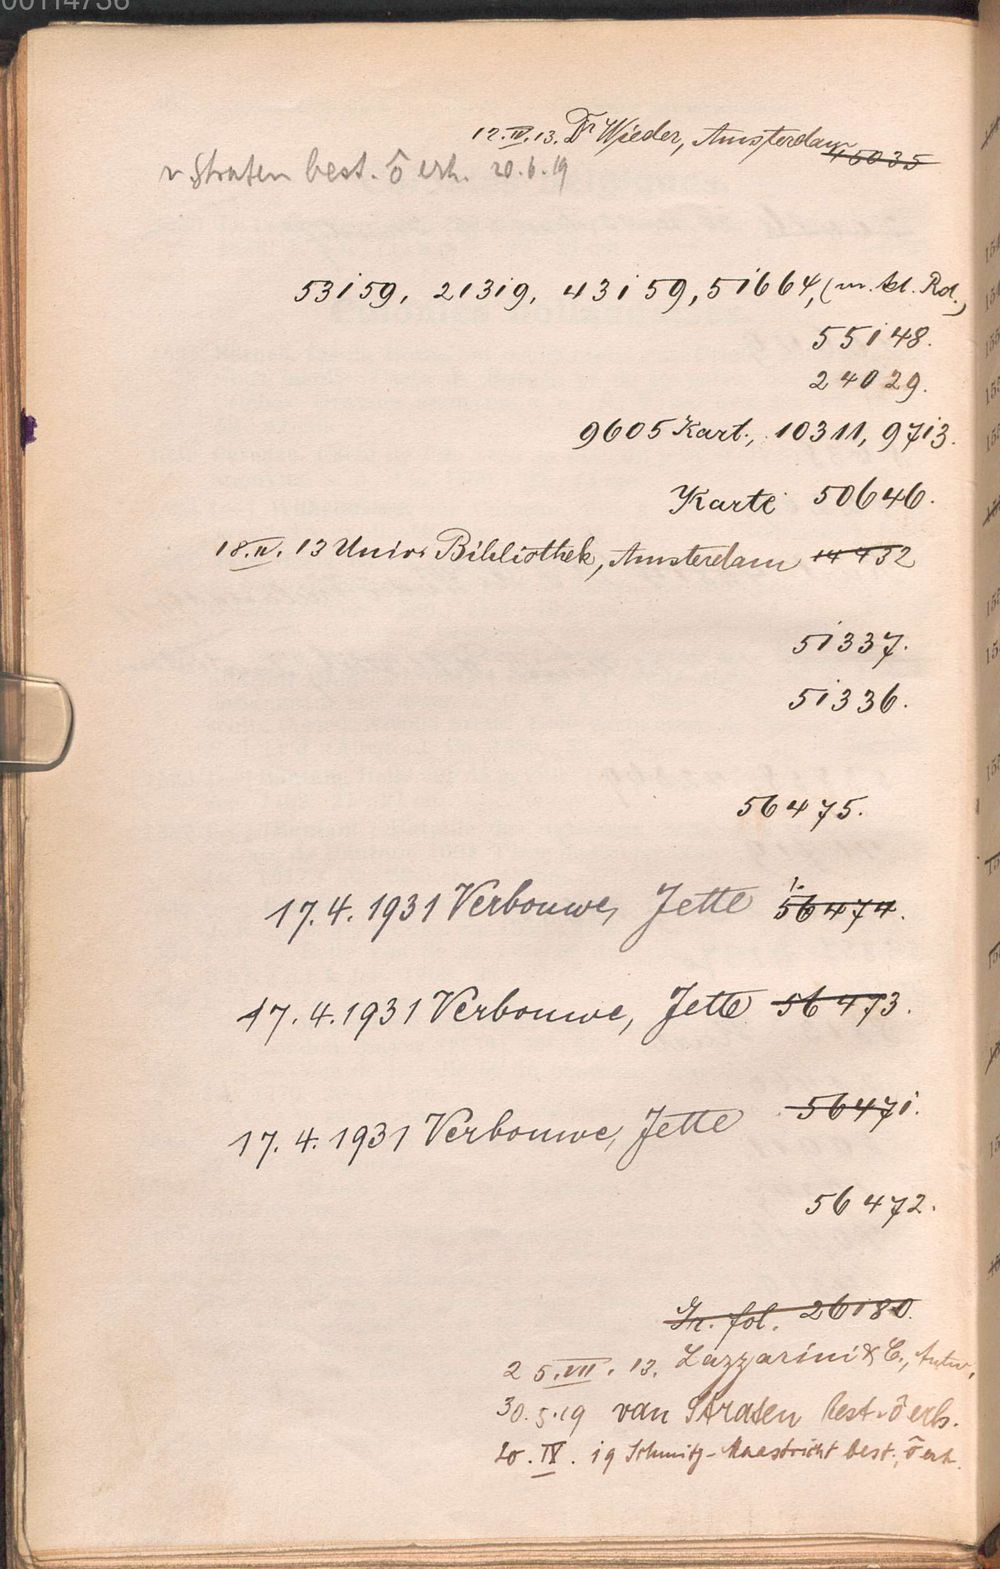 00114736
12.IV.13. Dr Wieder, Amsterdam 45035
v Straten best. ō erh. 20.6.19
53159, 21319, 43159, 51664, (m. kl. Rd.)
55148.
24029.
9605 Kart., 10311, 9713.
Karte 50646.
18.IV.13 Univ. Bibliothek, Amsterdam 14432
51337.
51336.
56475.
17.4.1931 Verbouwe, Jette 56474.
17.4.1931 Verbouwe, Jette 56473.
17.4.1931 Verbouwe, Jette 56471.
56472.
Gr. fol. 26180.
25.VII.13. Lazzarini & C., Antw.
30.5.19 van Straten best. ō erh.
20.IV.19 Schmitz-Maastricht best., ō erh.